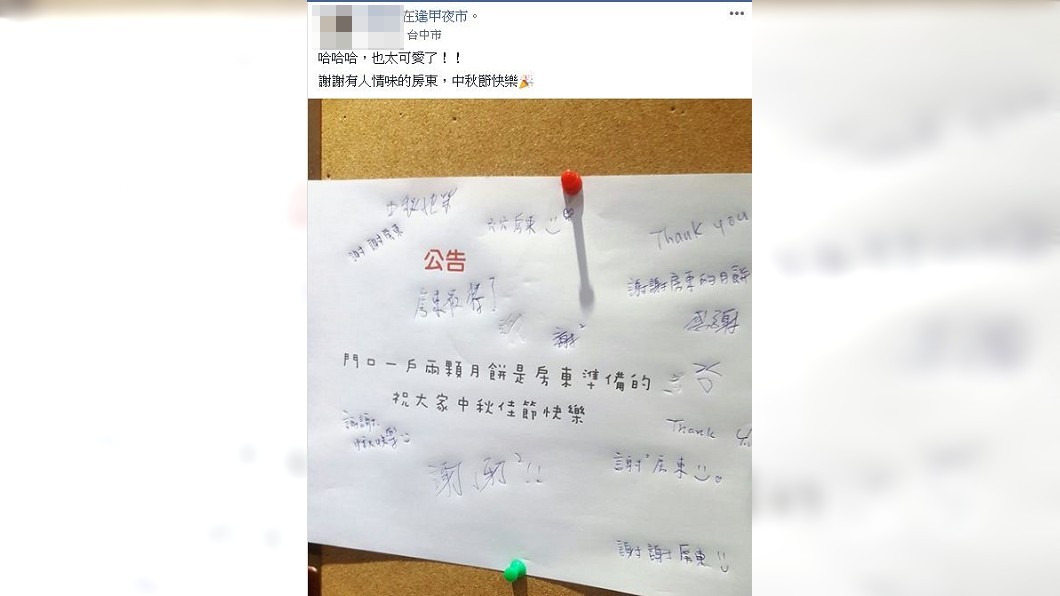 在逢甲夜市。
台中市
哈哈哈，也太可愛了！！
謝謝有人情味的房東，中秋節快樂🎉
中秋快樂
謝謝房東
六六房東
Thank you
公告
謝謝房東的月餅
房東最棒了
感謝
謝²
門口一戶兩顆月餅是房東準備的
祝大家中秋佳節快樂
謝謝
Thank
謝謝²!!
謝²房東
謝謝房東